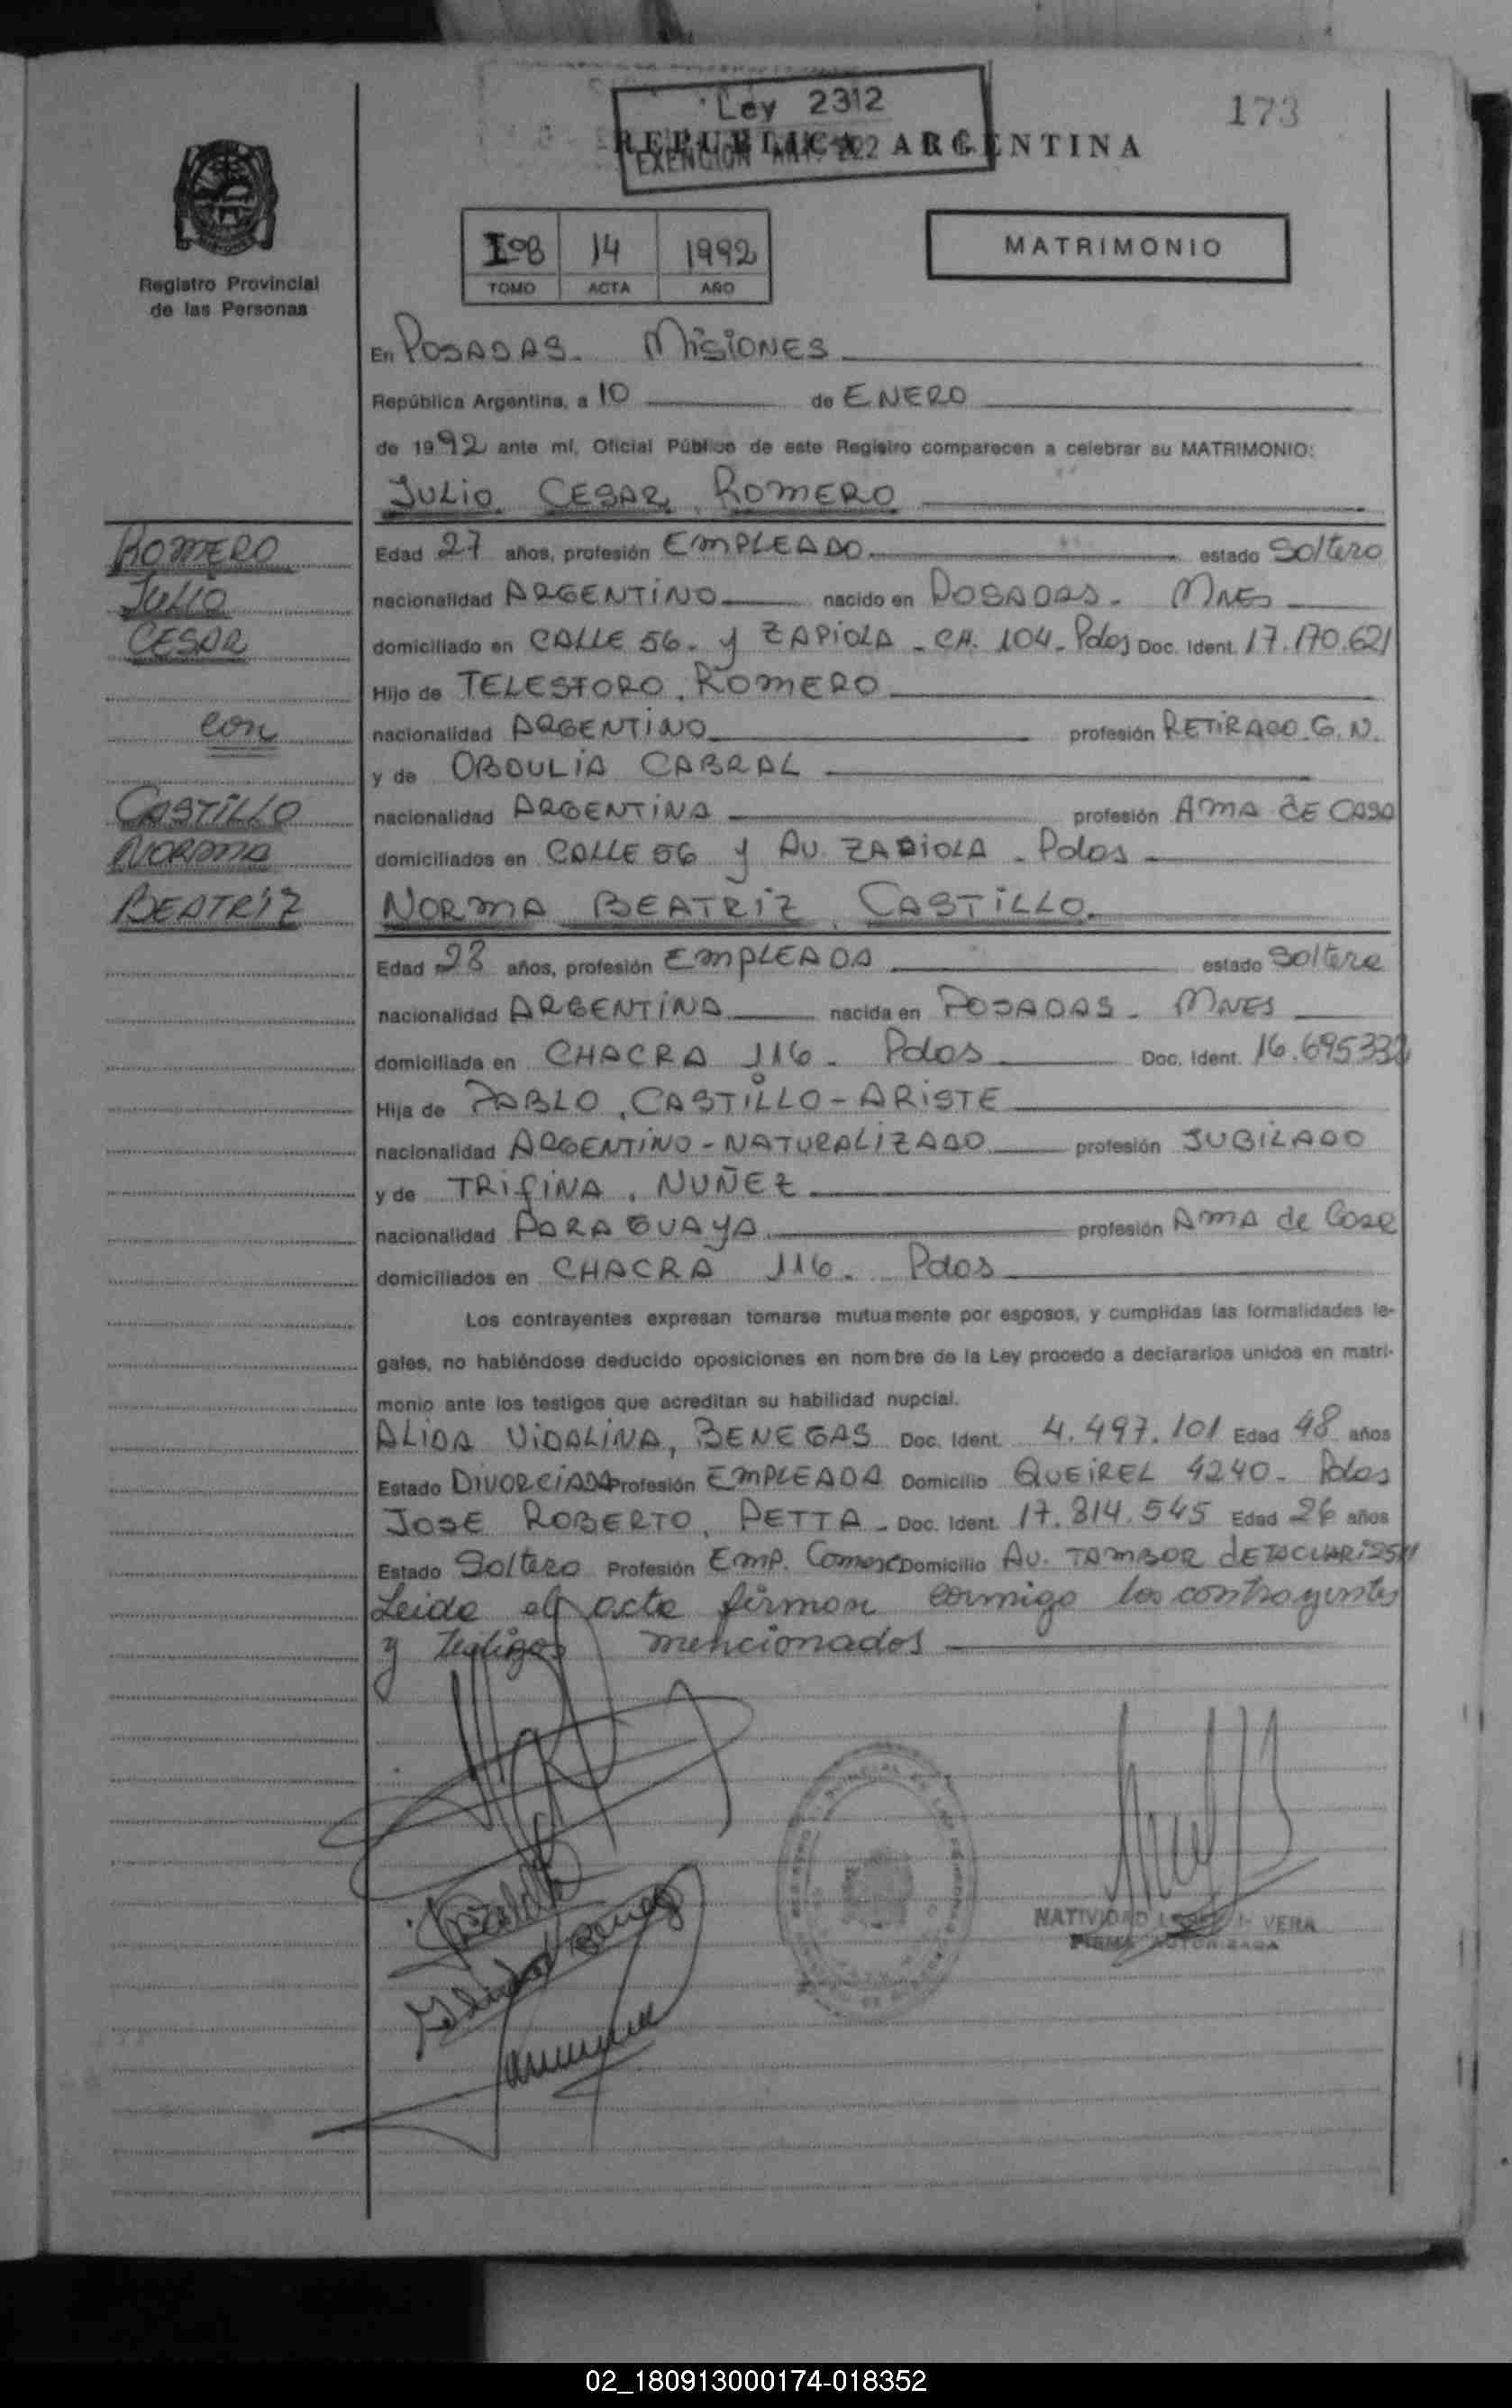 173
Ley 2312
REPUBLICA ARGENTINA
EXENCION ART. 222
Registro Provincial
de las Personas
Iº8 14 1992
TOMO ACTA AÑO
MATRIMONIO
En POSADAS - MISIONES
República Argentina, a 10 de ENERO
de 1992 ante mí, Oficial Público de este Registro comparecen a celebrar su MATRIMONIO:
JULIO CESAR, ROMERO
ROMERO
JULIO
CESAR
con
CASTILLO
NORMA
BEATRIZ
Edad 27 años, profesión EMPLEADO estado Soltero
nacionalidad ARGENTINO nacido en POSADAS - MNES
domiciliado en CALLE 56 - y ZAPIOLA - CH. 104 - Pdas Doc. Ident. 17.170.621
Hijo de TELESFORO, ROMERO
nacionalidad ARGENTINO profesión RETIRADO G. N.
y de OBDULIA CABRAL
nacionalidad ARGENTINA profesión AMA DE CASA
domiciliados en CALLE 56 y AV. ZAPIOLA - Pdas
NORMA BEATRIZ, CASTILLO.
Edad 28 años, profesión EMPLEADA estado Soltera
nacionalidad ARGENTINA nacida en POSADAS - MNES
domiciliada en CHACRA 116 - Pdas Doc. Ident. 16.695.332
Hija de PABLO, CASTILLO-ARISTE
nacionalidad ARGENTINO - NATURALIZADO profesión JUBILADO
y de TRIFINA, NUÑEZ
nacionalidad PARAGUAYA profesión AMA de Casa
domiciliados en CHACRA 116. Pdas
Los contrayentes expresan tomarse mutuamente por esposos, y cumplidas las formalidades le-
gales, no habiéndose deducido oposiciones en nombre de la Ley procedo a declararlos unidos en matri-
monio ante los testigos que acreditan su habilidad nupcial.
ALIDA VIDALINA, BENEGAS Doc. Ident. 4.497.101 Edad 48 años
Estado DIVORCIADA Profesión EMPLEADA Domicilio QUEIREL 4240 - Pdas
JOSE ROBERTO, PETTA - Doc. Ident. 17.814.545 Edad 26 años
Estado Soltero Profesión Emp. Comerc Domicilio AV. TAMBOR DE TACUARI 2511
Leida el acta firman conmigo los contrayentes
y testigos mencionados
NATIVIDAD VERA
FIRMA AUTORIZADA
02_180913000174-018352